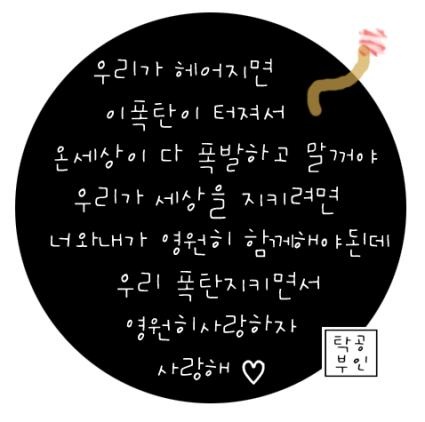 우리가 헤어지면
이폭탄이 터져서
온세상이 다 폭발하고 말꺼야
우리가 세상을 지키려면
너와내가 영원히 함께해야된데
우리 폭탄지키면서
영원히사랑하자
사랑해 ♡
탁공
부인